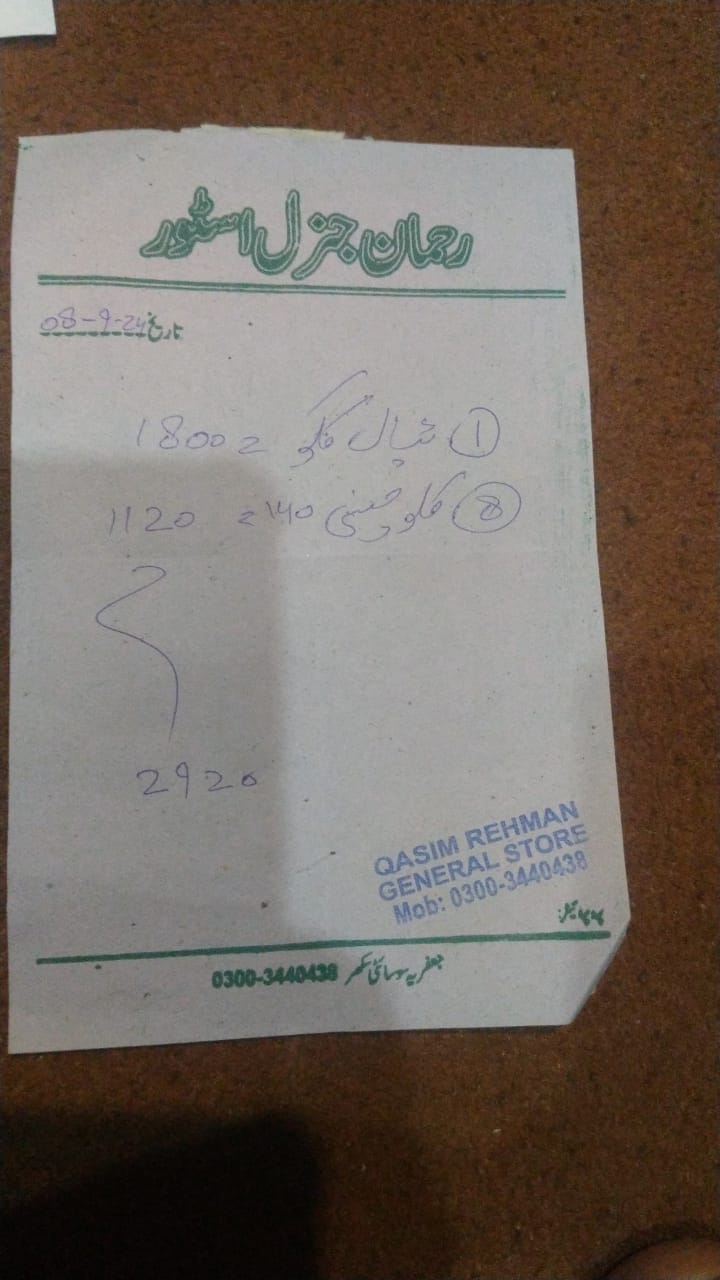 رحمان جنرل اسٹور
تاریخ 08-9-24
① ٹپال کلو = 1800
⑧ کلو چینی 140 = 1120
2920
QASIM REHMAN
GENERAL STORE
Mob: 0300-3440438
جعفریہ سوسائٹی سکھر 0300-3440438